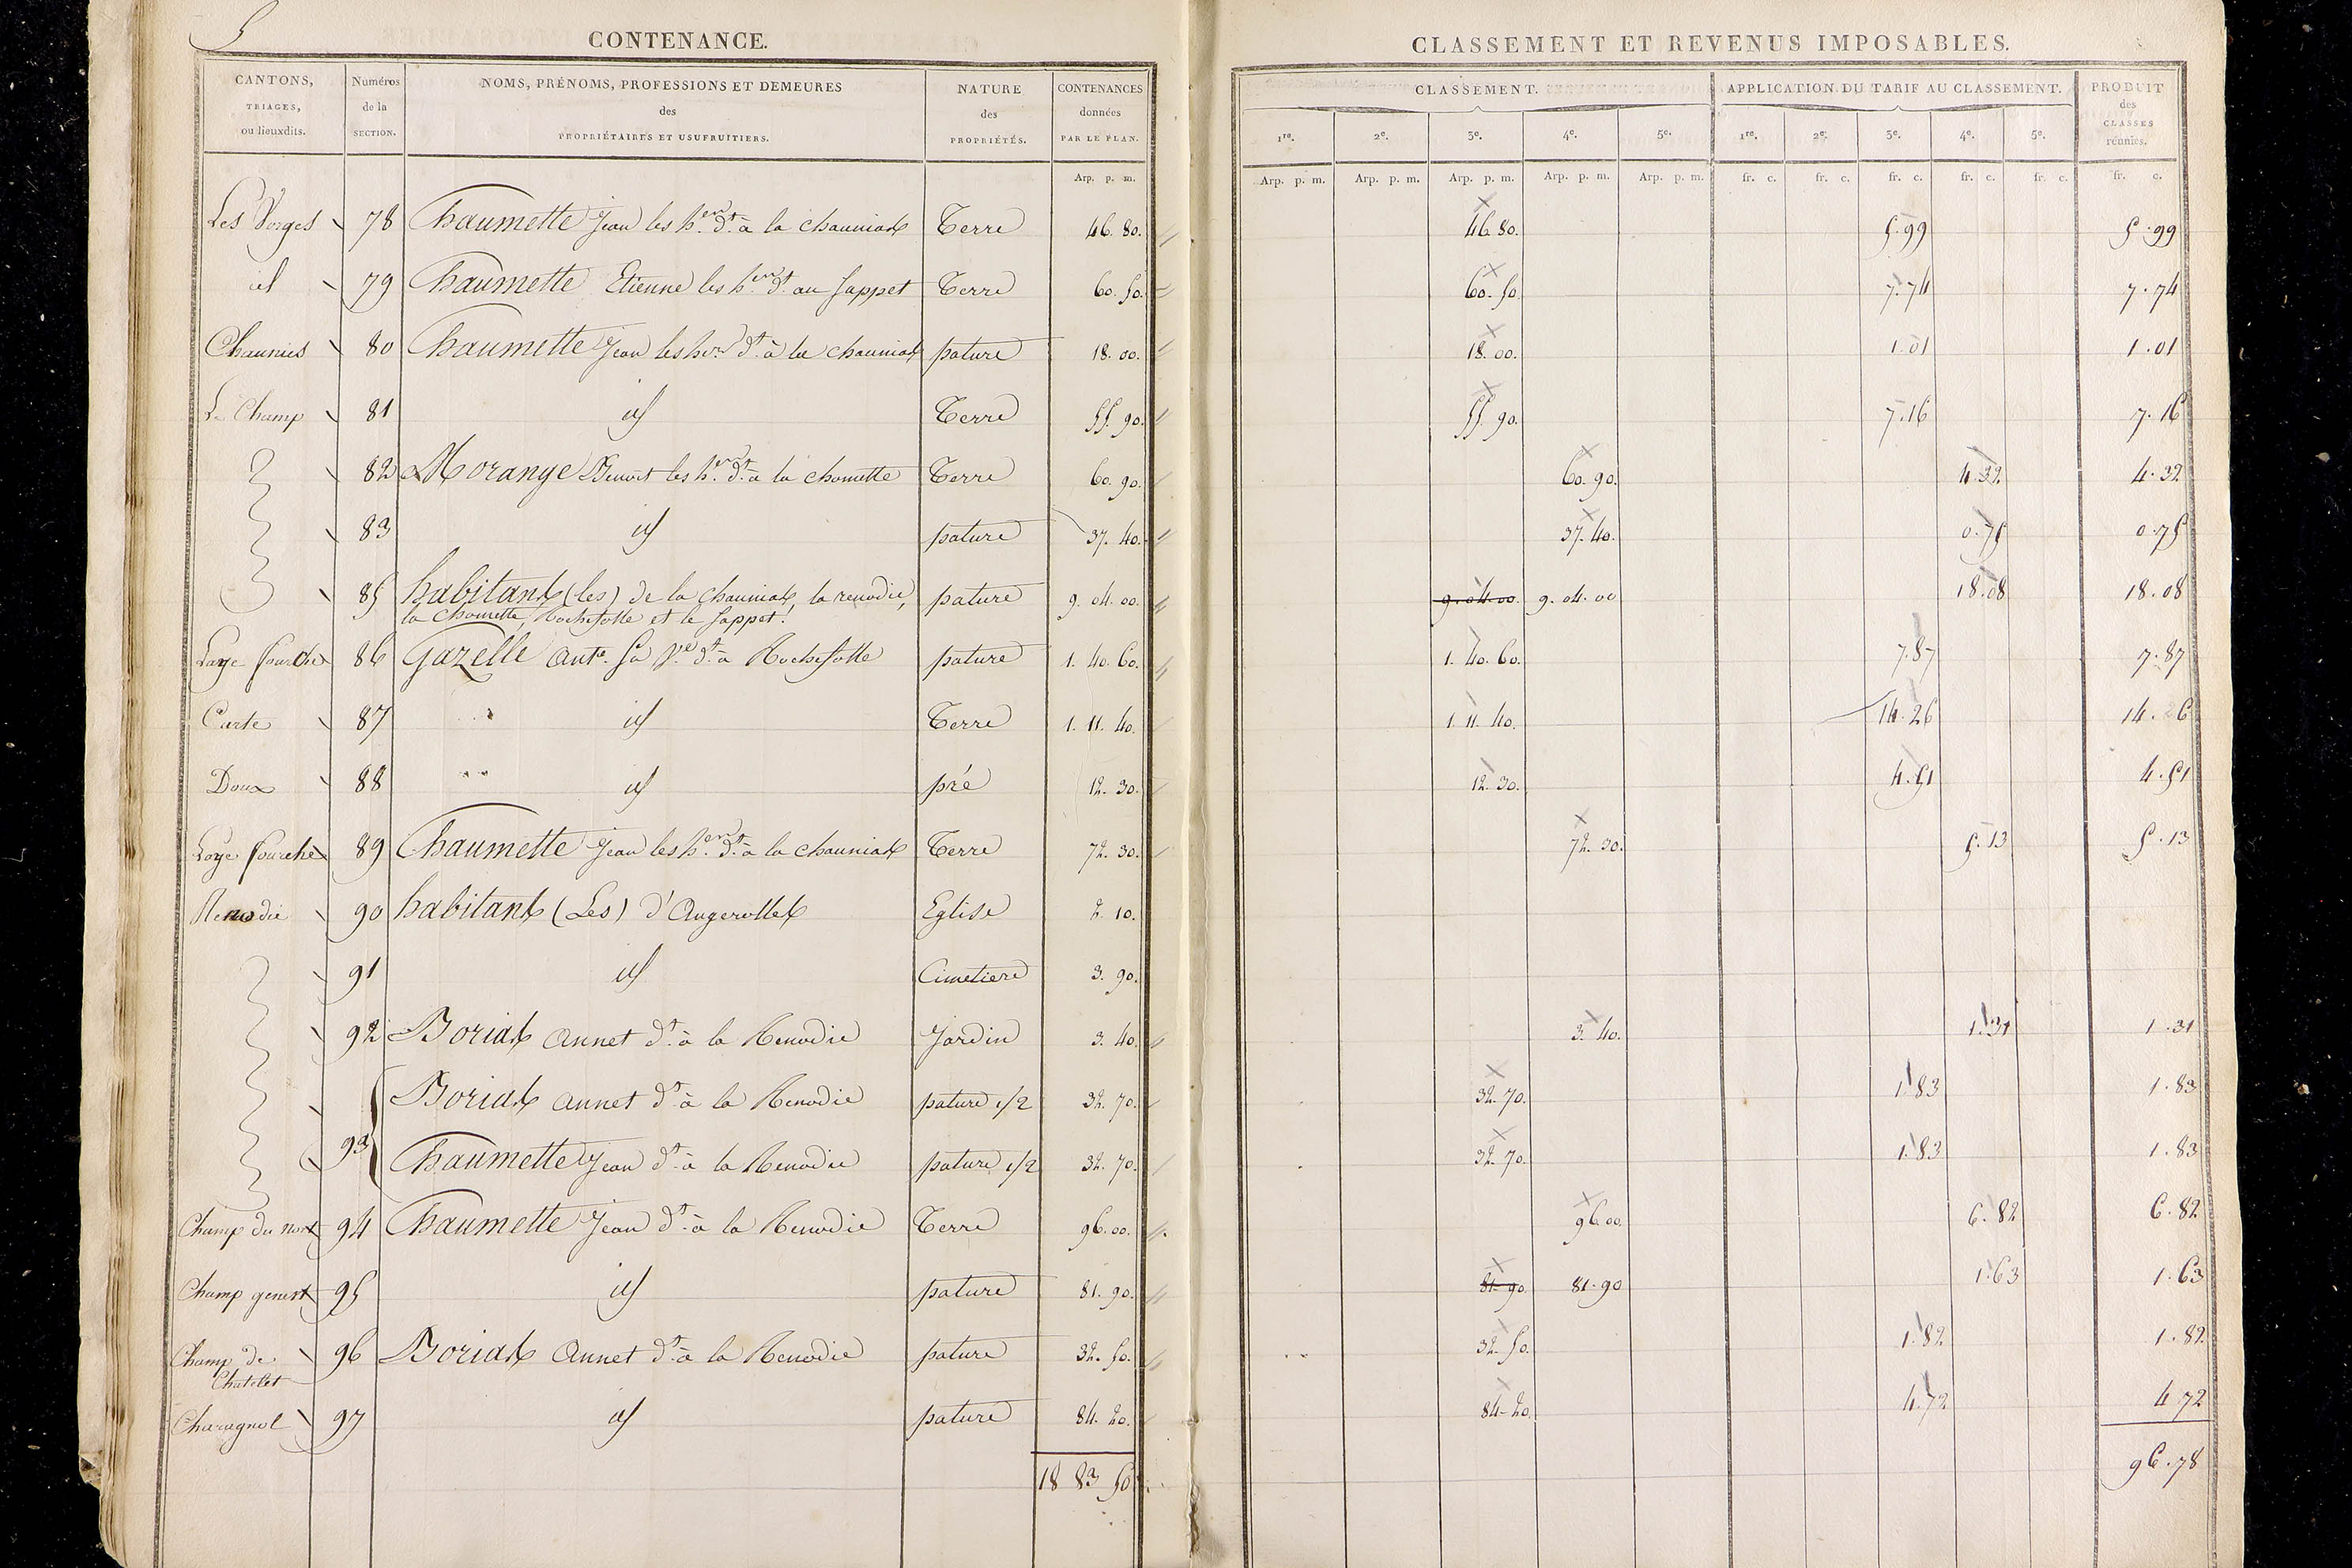 5
CONTENANCE.
CANTONS, TRIAGES, ou lieuxdits. Numéros de la SECTION. NOMS, PRÉNOMS, PROFESSIONS ET DEMEURES des PROPRIÉTAIRES ET USUFRUITIERS. NATURE des PROPRIÉTÉS. CONTENANCES données PAR LE PLAN.
Arp. p. m.
Les Vorges 78 Chaumette Jean les h.ers d.t à la chauniat Terre 46. 80.
id 79 Chaumette Etienne les h.ers d.t au Sappet Terre 60. 50.
Chaunies 80 Chaumette Jean les hers d.t à la chauniat pature 18. 00.
Le Champ 81 id Terre 55. 90.
82 Morange Benoit les h.ers d.t à la chomette Terre 60. 90.
83 id pature 37. 40.
85 habitants (les) de la chauniat, la renodie, pature 9. 04. 00.
la Chomette, Rochefolle et le Sappet.
Laye fourche 86 Gazelle ant.e sa V.e d.t à Rochefolle pature 1. 40. 60.
Carte 87 id Terre 1. 11. 40.
Doux 88 id pré 12. 30.
Loye fourche 89 Chaumette Jean les h.ers d.t à la chauniat Terre 72. 30.
Renodie 90 habitants (Les) d'Augerolles Eglise 2. 10.
91 id Cimetiere 3. 90.
92 Boriat Annet d.t à la Renodie Jardin 3. 40.
93 Boriat Annet d.t à la Renodie pature 1/2 32. 70.
Chaumette Jean d.t à la Renodie pature 1/2 32. 70.
Champ du mort 94 Chaumette Jean d.t à la Renodie Terre 96. 00.
Champ genest 95 id pature 81. 90.
Champ de Chatelet 96 Boriat Annet d.t à la Renodie pature 32. 50.
Charagnol 97 id pature 84. 20.
18 83 50
CLASSEMENT ET REVENUS IMPOSABLES.
CLASSEMENT. APPLICATION DU TARIF AU CLASSEMENT. PRODUIT des CLASSES réunies.
1re. 2e. 3e. 4e. 5e. 1re. 2e. 3e. 4e. 5e.
Arp. p. m. Arp. p. m. Arp. p. m. Arp. p. m. Arp. p. m. fr. c. fr. c. fr. c. fr. c. fr. c. fr. c.
46. 80. 5.99 5.99
60. 50. 7.74 7.74
18. 00. 1.01 1.01
55. 90. 7.16 7.16
60. 90. 4.32 4.32
37. 40. 0.75 0.75
9. 04. 00. 9. 04. 00 18.08 18.08
1. 40. 60. 7.87 7.87
1. 11. 40. 14.26 14.26
12. 30. 4.51 4.51
72. 30. 5.13 5.13
3. 40. 1.31 1.31
32. 70. 1.83 1.83
32. 70. 1.83 1.83
96. 00. 6.82 6.82
81. 90. 81. 90 1.63 1.63
32. 50. 1.82 1.82
84. 20. 4.72 4.72
96.78